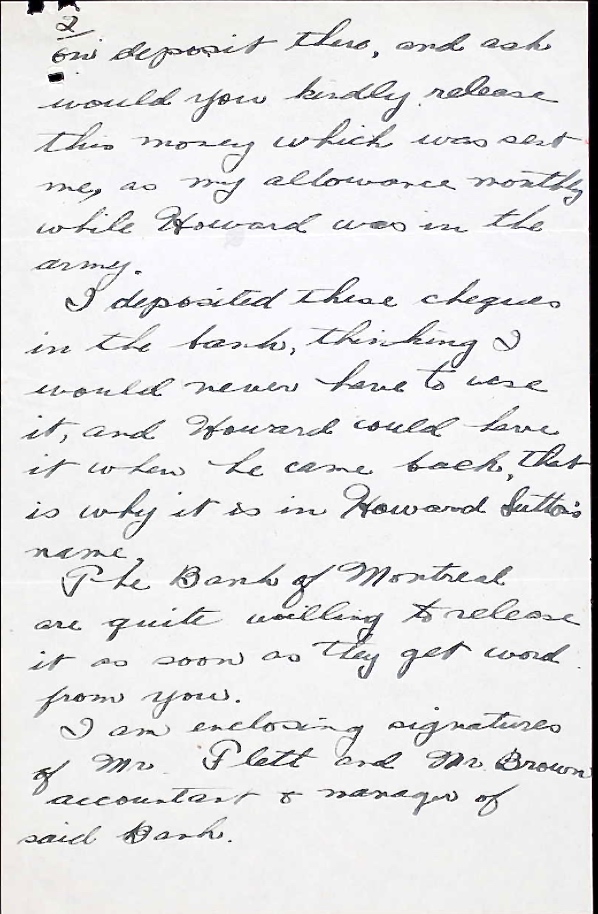 2
on deposit there, and ask
would you kindly release
this money which was sent
me, as my allowance monthly
while Howard was in the
army.
I deposited these cheques
in the bank, thinking I
would never have to use
it, and Howard could have
it when he came back, that
is why it is in Howard Sutton's
name.
The Bank of Montreal
are quite willing to release
it as soon as they get word
from you.
I am enclosing signatures
of Mr. Flett and Mr. Brown
accountant & manager of
said Bank.